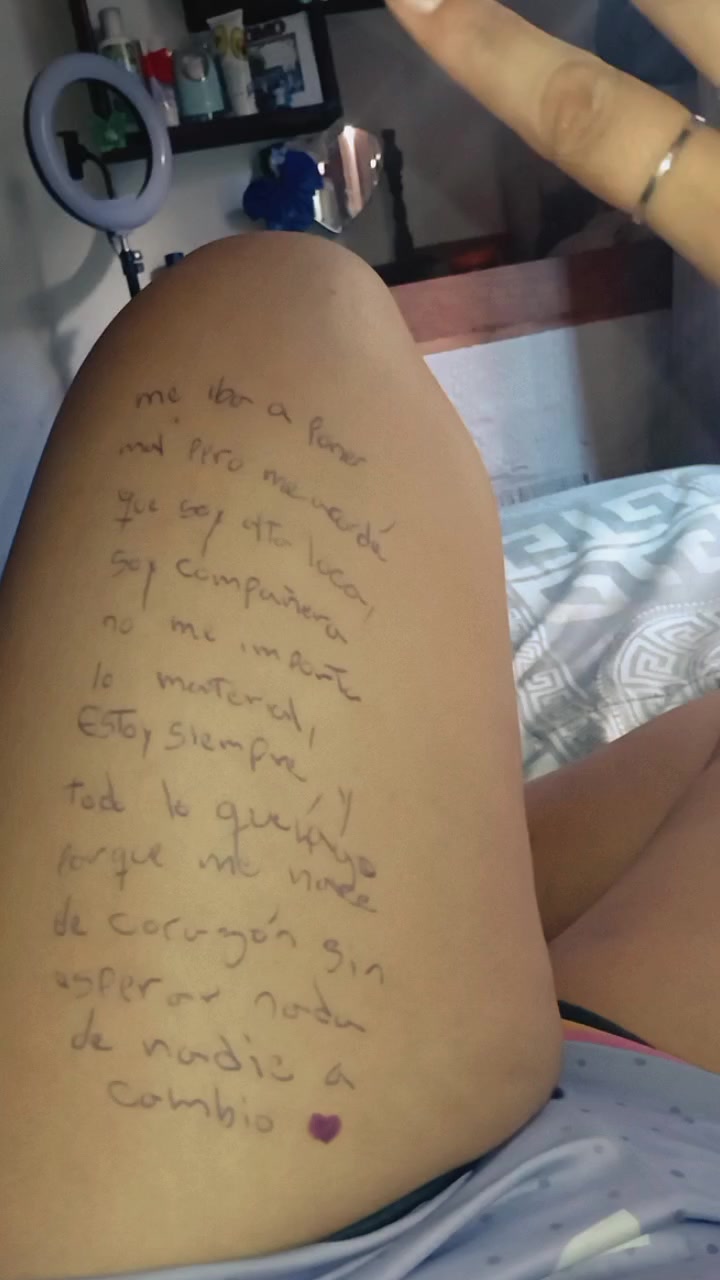 me iba a poner
mal pero me acordé
que soy alta loca,
soy compañera
no me importa
lo material,
Estoy siempre, y
todo lo que hago
porque me nace
de corazón sin
esperar nada
de nadie a
cambio ♥